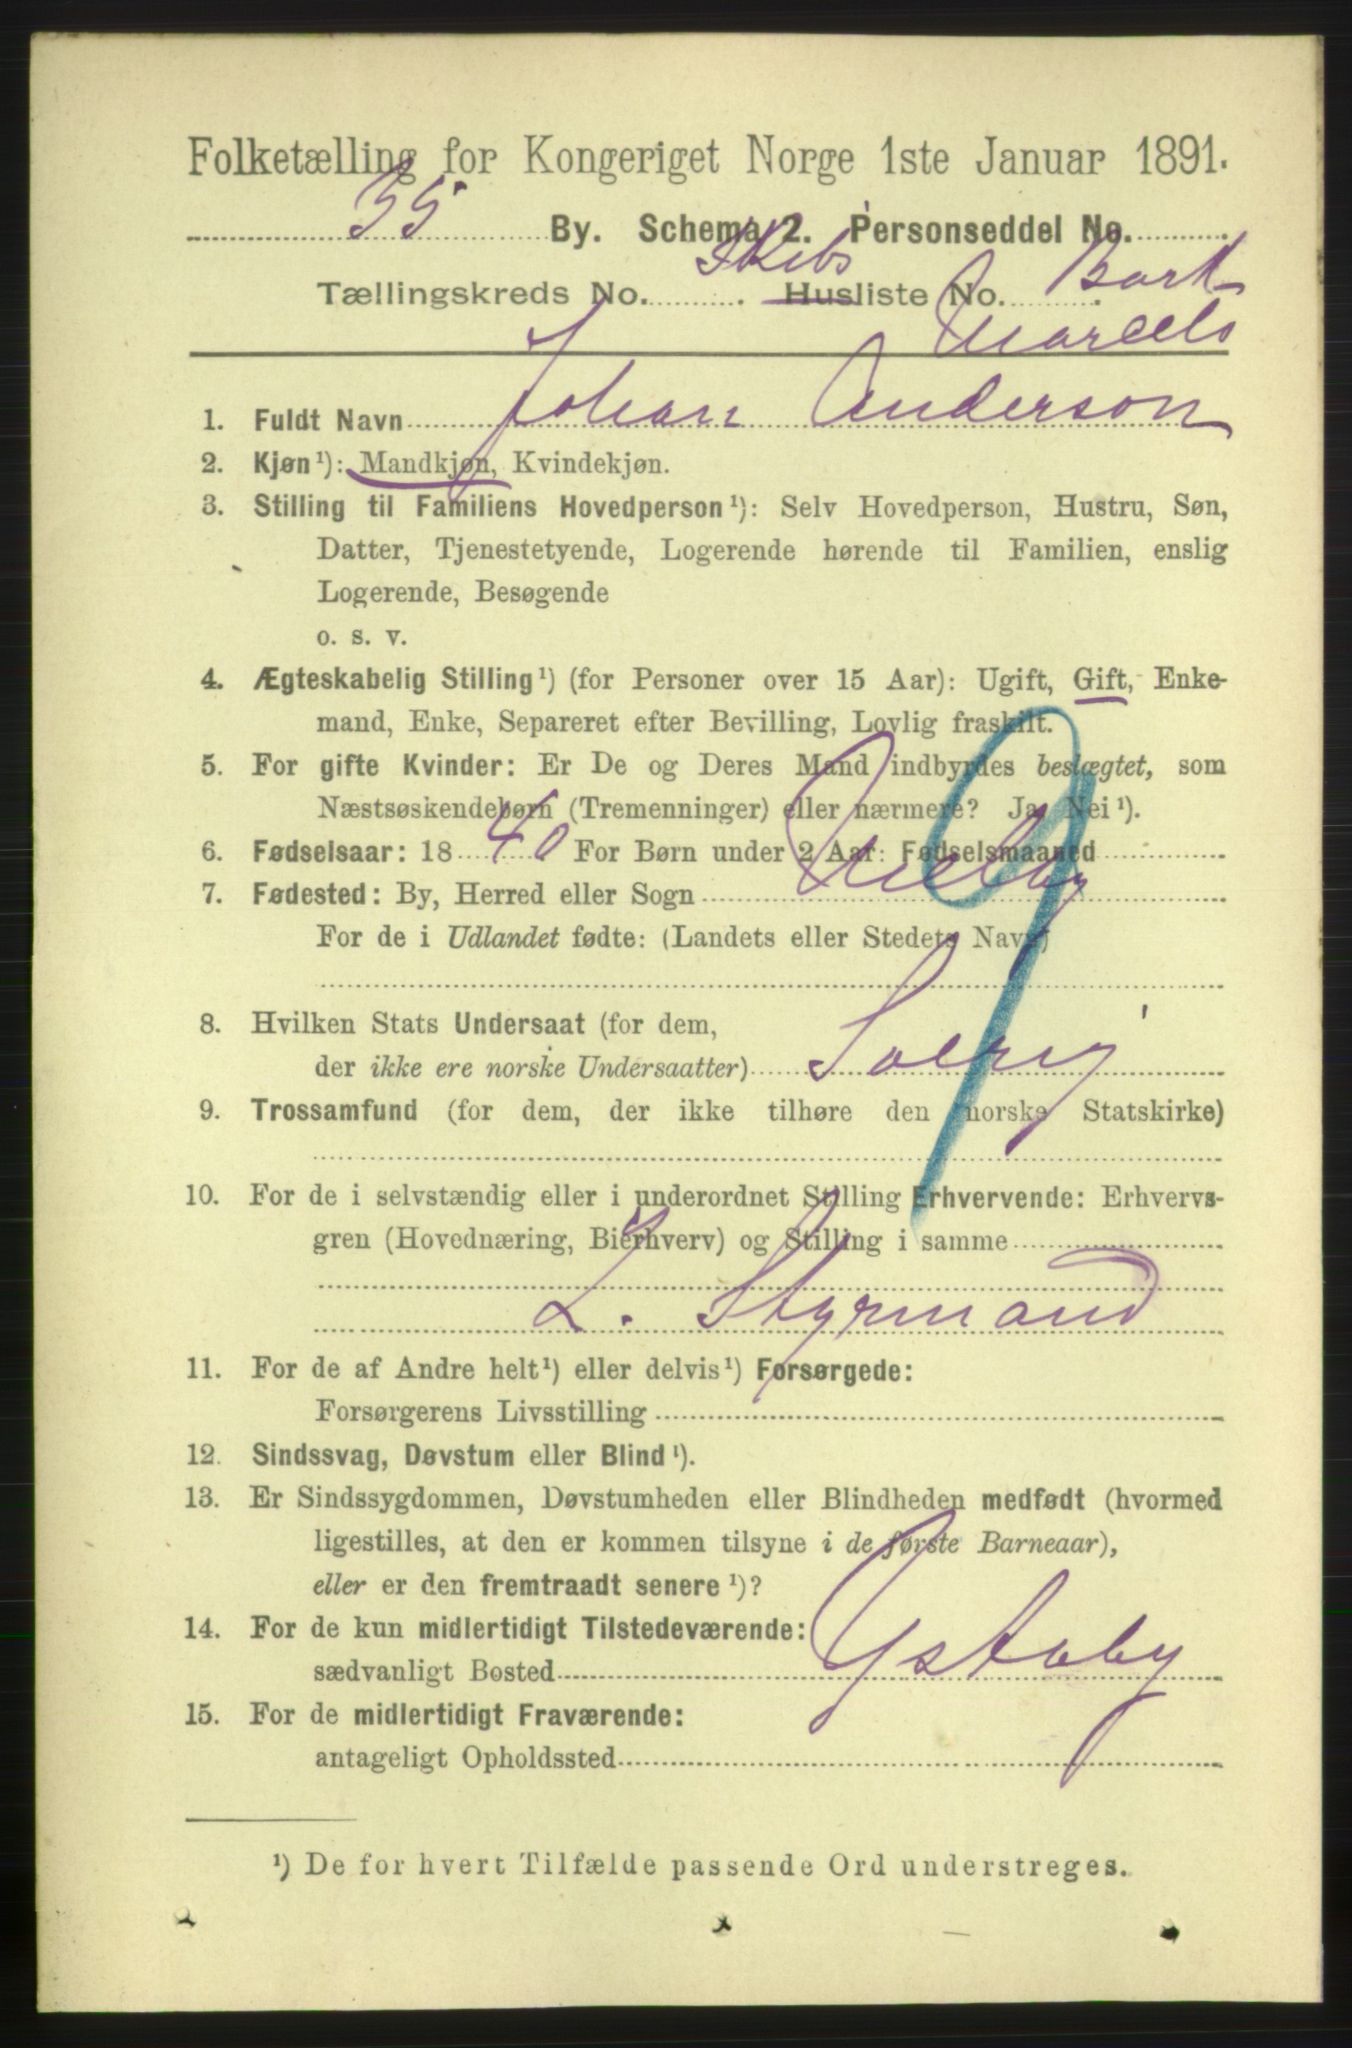 Folketælling for Kongeriget Norge 1ste Januar 1891.
35 By. Schema 2. Personseddel No.
Tællingskreds No. Skibs Husliste No. Bark
Marcels
1. Fuldt Navn Johan Anderson
2. Kjøn¹): Mandkjøn, Kvindekjøn.
3. Stilling til Familiens Hovedperson¹): Selv Hovedperson, Hustru, Søn,
Datter, Tjenestetyende, Logerende hørende til Familien, enslig
Logerende, Besøgende
o. s. v.
4. Ægteskabelig Stilling¹) (for Personer over 15 Aar): Ugift, Gift, Enke-
mand, Enke, Separeret efter Bevilling, Lovlig fraskilt.
5. For gifte Kvinder: Er De og Deres Mand indbyrdes beslægtet, som
Næstsøskendebørn (Tremenninger) eller nærmere? Ja, Nei¹).
6. Fødselsaar: 1840 For Børn under 2 Aar: Fødselsmaaned
7. Fødested: By, Herred eller Sogn
For de i Udlandet fødte: (Landets eller Stedets Navn)
9
8. Hvilken Stats Undersaat (for dem,
der ikke ere norske Undersaatter) Sverig
9. Trossamfund (for dem, der ikke tilhøre den norske Statskirke)
10. For de i selvstændig eller i underordnet Stilling Erhvervende: Erhvervs-
gren (Hovednæring, Bierhverv) og Stilling i samme
2. Styrmand
11. For de af Andre helt¹) eller delvis¹) Forsørgede:
Forsørgerens Livsstilling
12. Sindssvag, Døvstum eller Blind¹).
13. Er Sindssygdommen, Døvstumheden eller Blindheden medfødt (hvormed
ligestilles, at den er kommen tilsyne i de første Barneaar),
eller er den fremtraadt senere¹)?
14. For de kun midlertidigt Tilstedeværende:
sædvanligt Bosted Ystaby
15. For de midlertidigt Fraværende:
antageligt Opholdssted
¹) De for hvert Tilfælde passende Ord understreges.